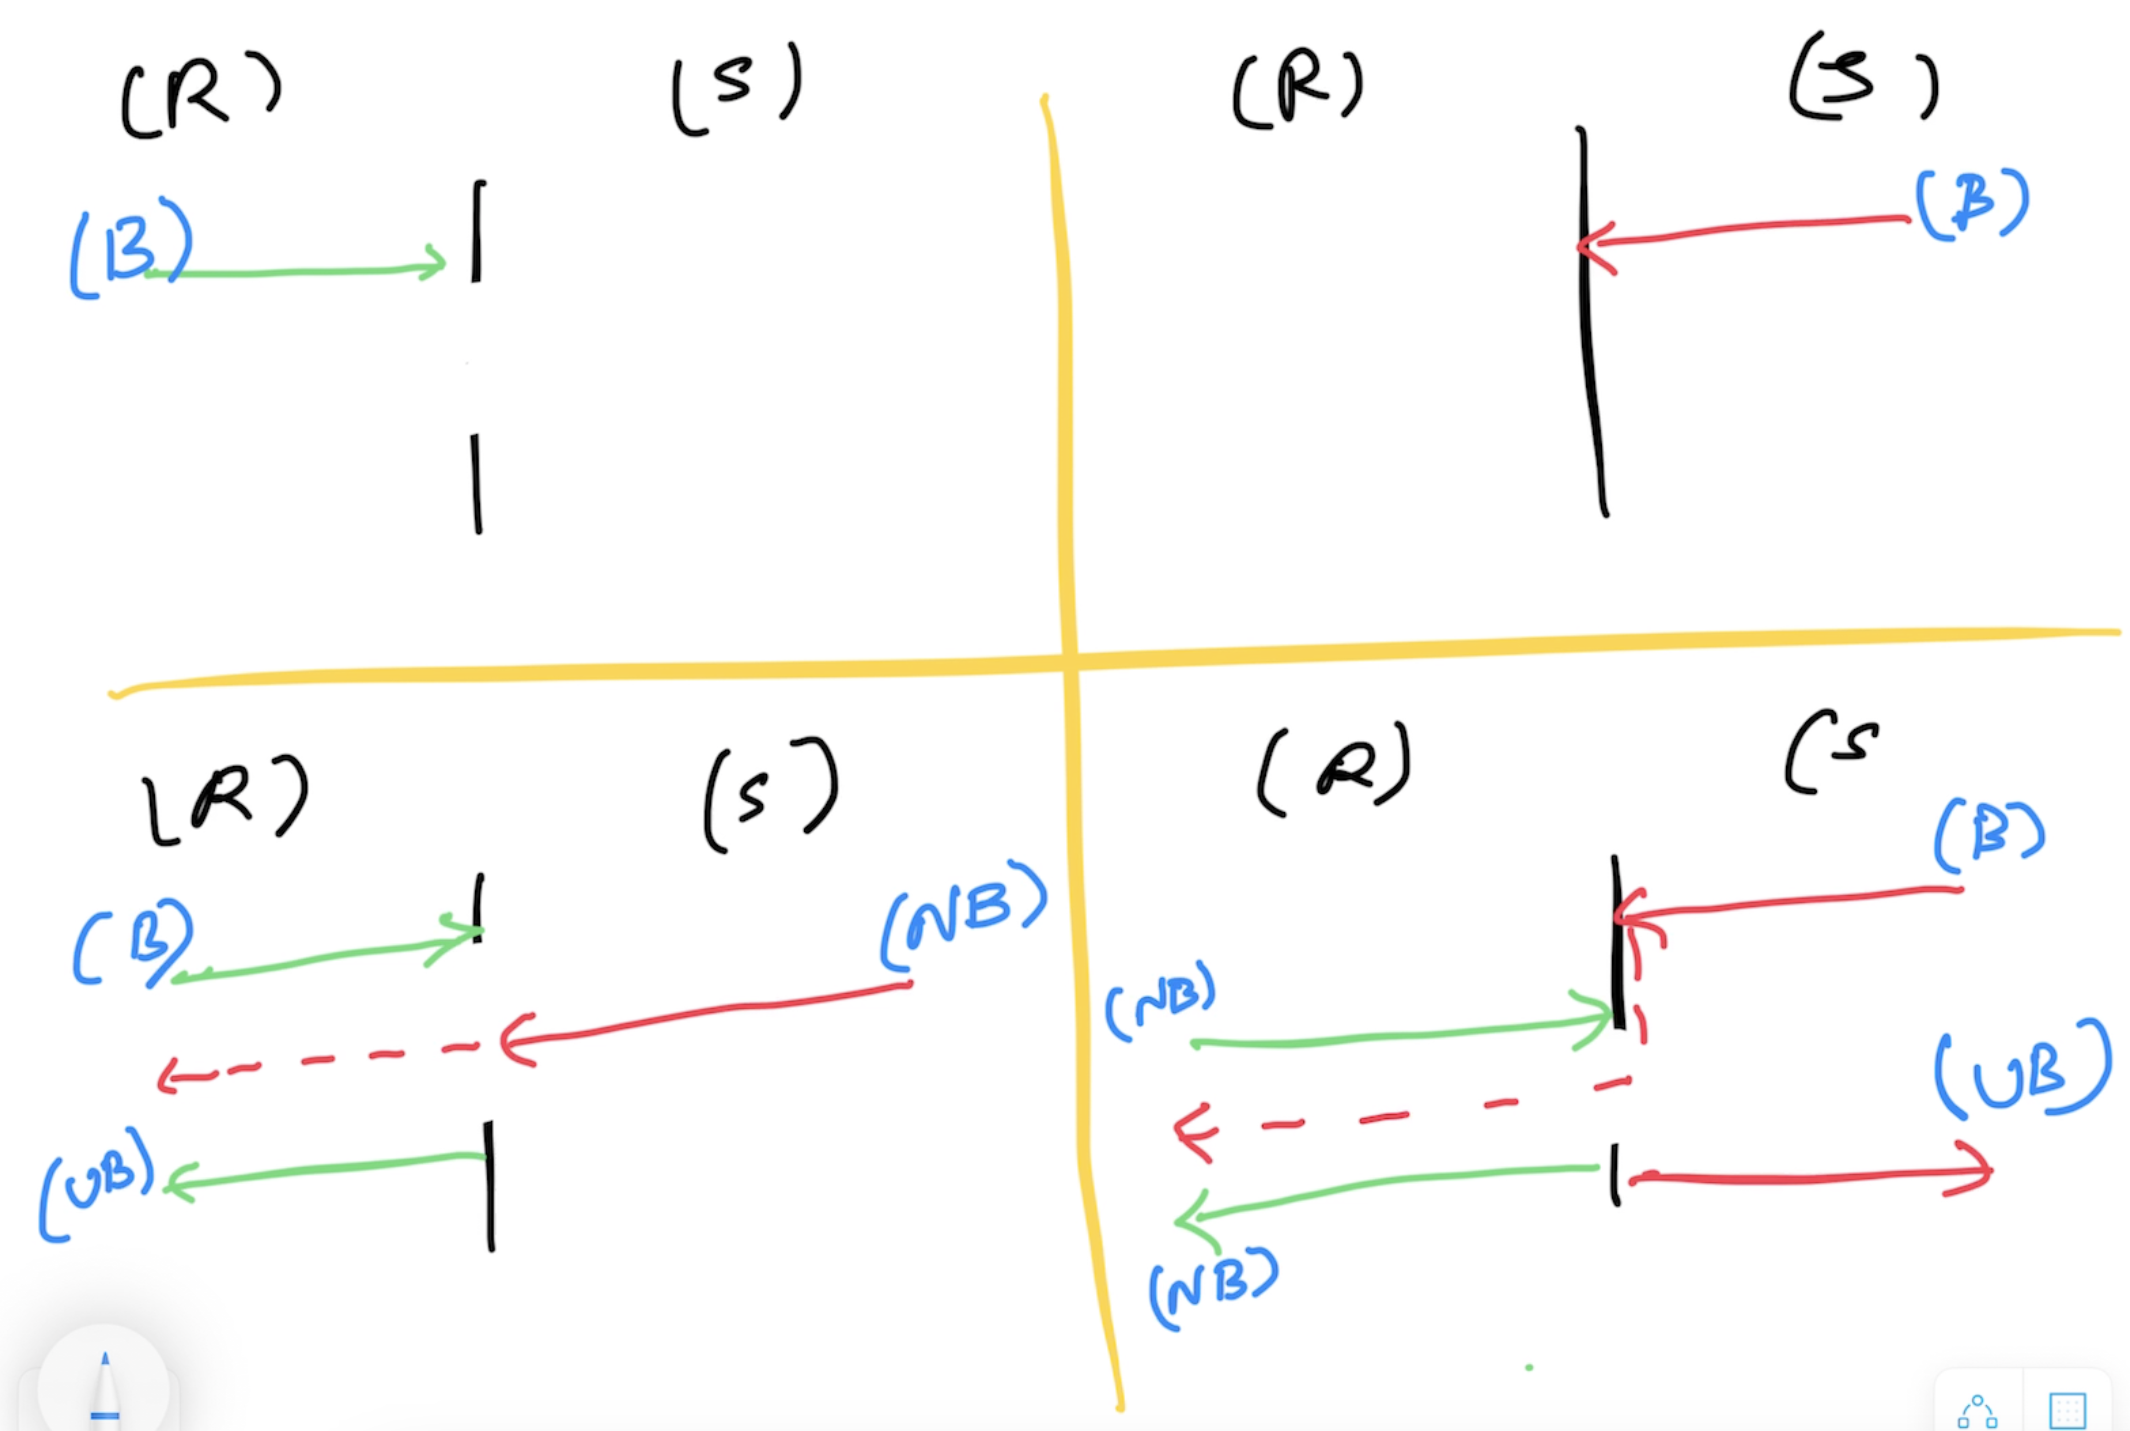 (R) (S)
(B)
(R) (S)
(B)
(R) (S)
(B) (NB)
(UB)
(R) (S
(B)
(NB)
(UB)
(NB)